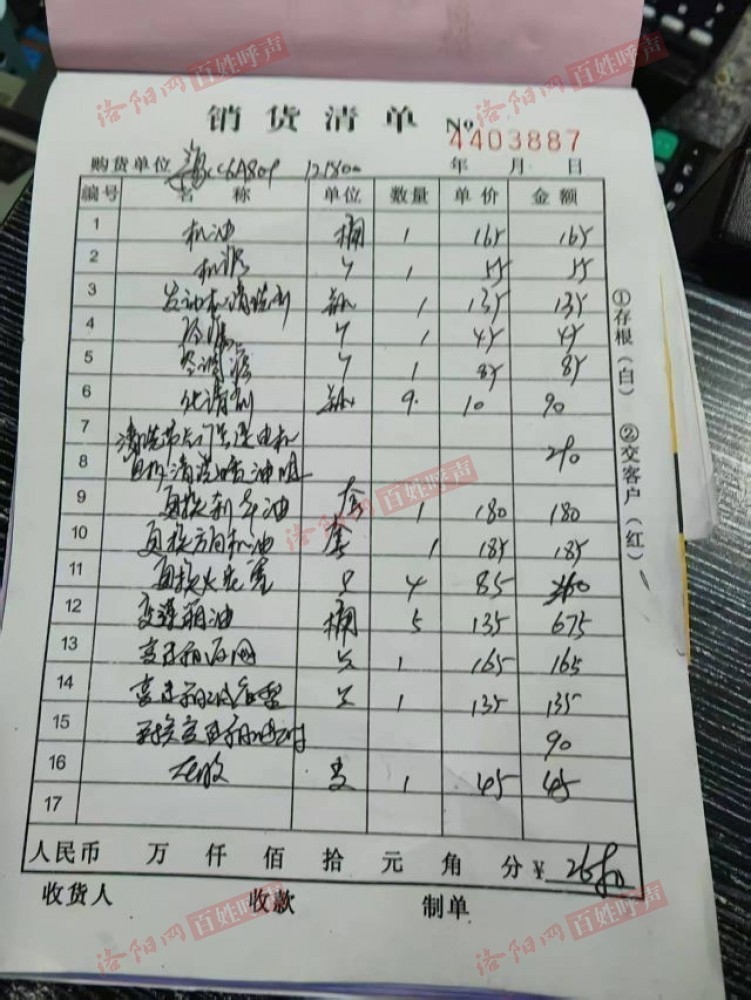 销货清单 № 4403887
购货单位 CC6A809 121800 年 月 日
编号 名称 单位 数量 单价 金额
1 机油 桶 1 165 165
2 机滤 1 55 55
3 发动机清洗剂 瓶 1 135 135
4 1 45 45
5 空调滤 1 85 85
6 化清剂 瓶 9 10 90
7 清洗节气门
8 清洗喷油咀 290
9 更换刹车油 套 1 180 180
10 更换方向机油 套 1 185 185
11 更换火花塞 只 4 85 360
12 变速箱油 桶 5 135 675
13 变速箱滤网 1 165 165
14 变速箱油底垫 1 135 135
15 90
16 支 1 45 45
17
人民币 万 仟 佰 拾 元 角 分 ¥
收货人 收款 制单
①存根(白) ②交客户(红)
洛阳网 百姓呼声
洛阳网 百姓呼声
洛阳网 百姓呼声
洛阳网 百姓呼声
洛阳网 百姓呼声